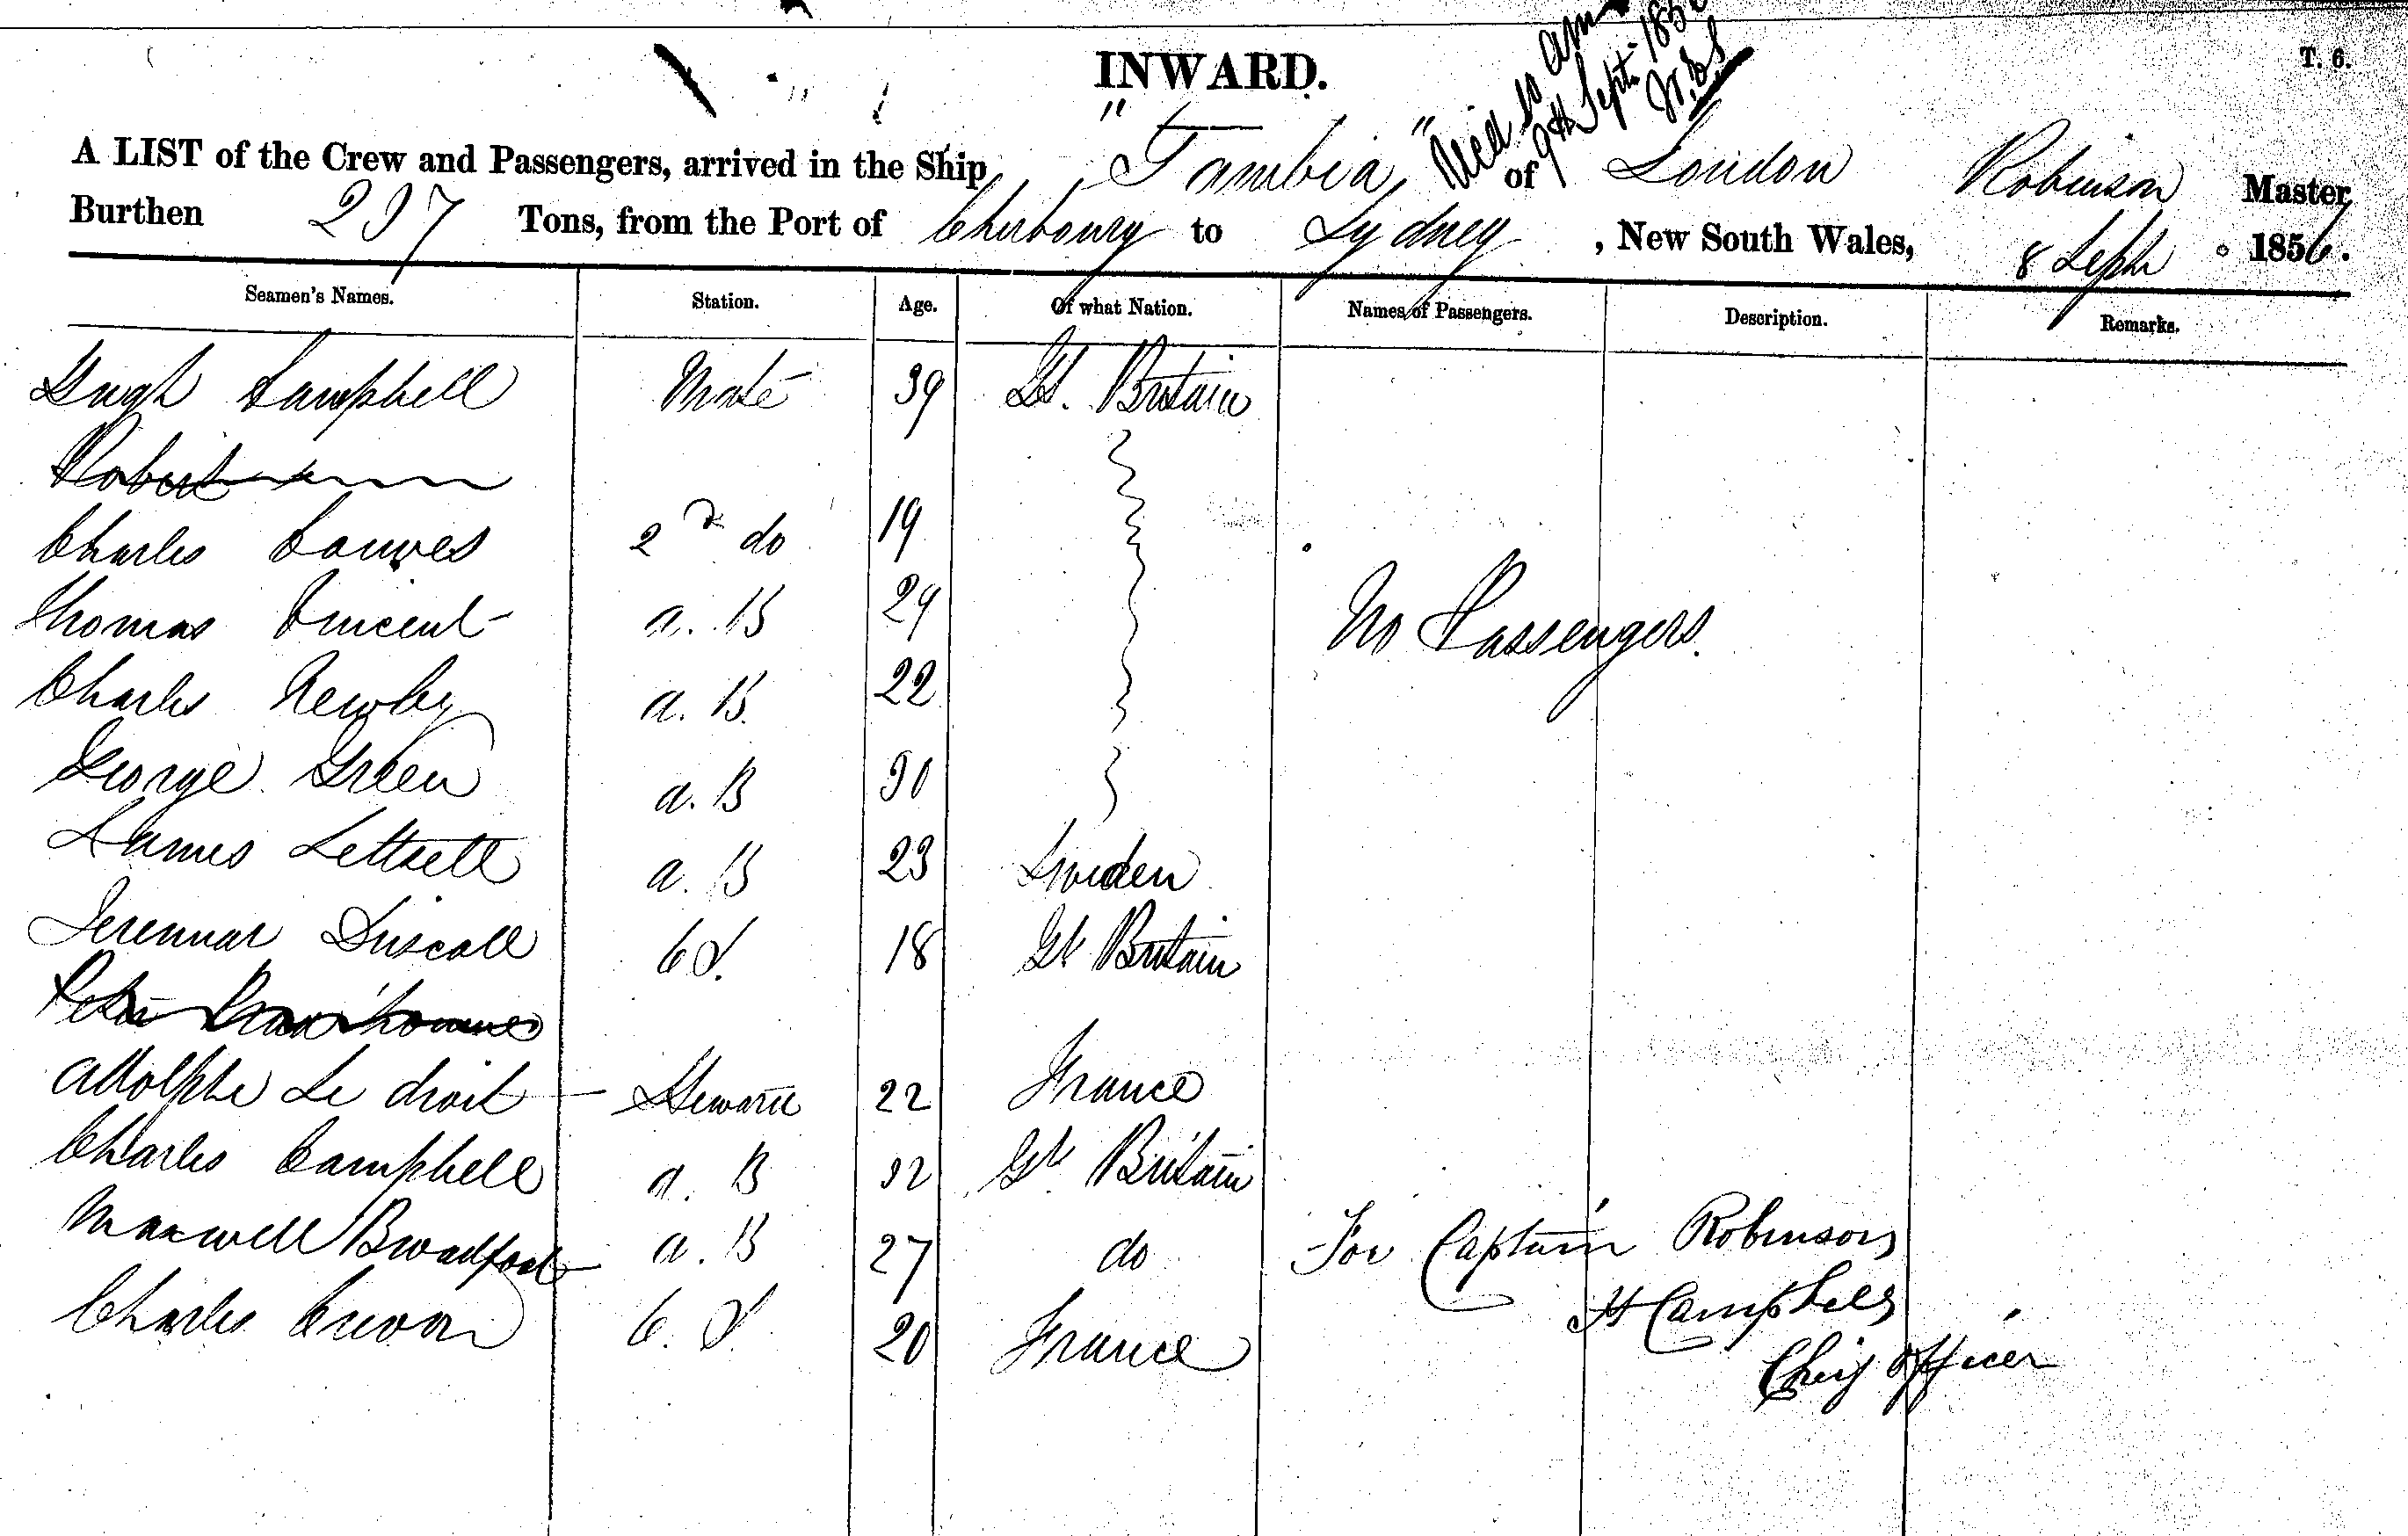 INWARD.
T. 6.
9th Sept. 185
A LIST of the Crew and Passengers, arrived in the Ship "Tambia" of London Robinson Master,
Burthen 237 Tons, from the Port of Cherbourg to Sydney, New South Wales, 8 Septr 1856.
Seamen's Names. Station. Age. Of what Nation. Names of Passengers. Description. Remarks.
Hugh Campbell Mate 39 Gt. Britain
Robert
Charles 2nd do 19
Thomas Vincent a. B 29
No Passengers.
Charles Newby a. B. 22
George Green a. B 30
a. B 23 Sweden
Driscoll O S. 18 Gt Britain
Adolphe Le droit Steward 22 France
Charles Campbell a. B 32 Gt Britain
Maxwell a. B 27 do
For Captain Robinson
Charles O. S. 20 France
H Campbell
Chief Officer